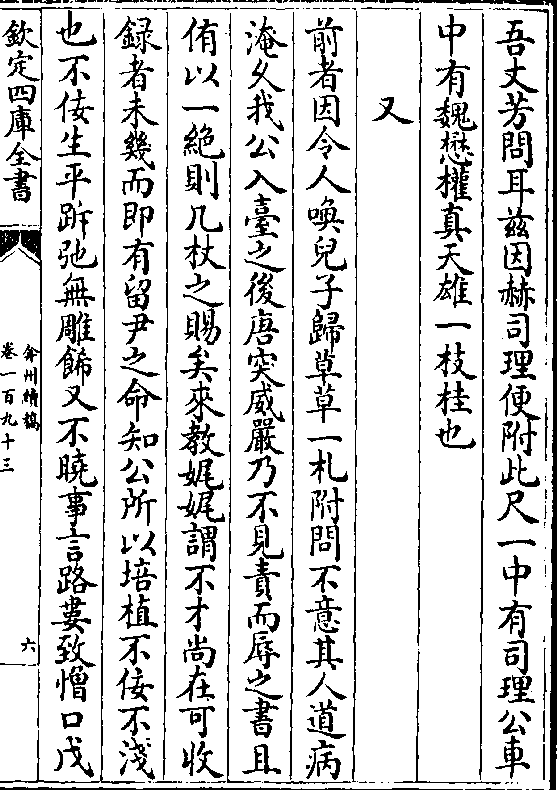 吾丈芳問耳兹因赫司理便附此尺一中有司理公車
中有魏懋權真天雄一枝桂也
又
前者因令人喚兒子歸草草一札附問不意其人道病
淹久我公入臺之後唐突威嚴乃不見責而辱之書且
侑以一絶則几杖之賜矣來教娓娓謂不才尚在可收
録者未幾而即有留尹之命知公所以培植不佞不淺
也不佞生平跅弛無雕飾又不曉事言路婁致憎口戊
欽定四庫全書
弇州續稿
卷一百九十三
六